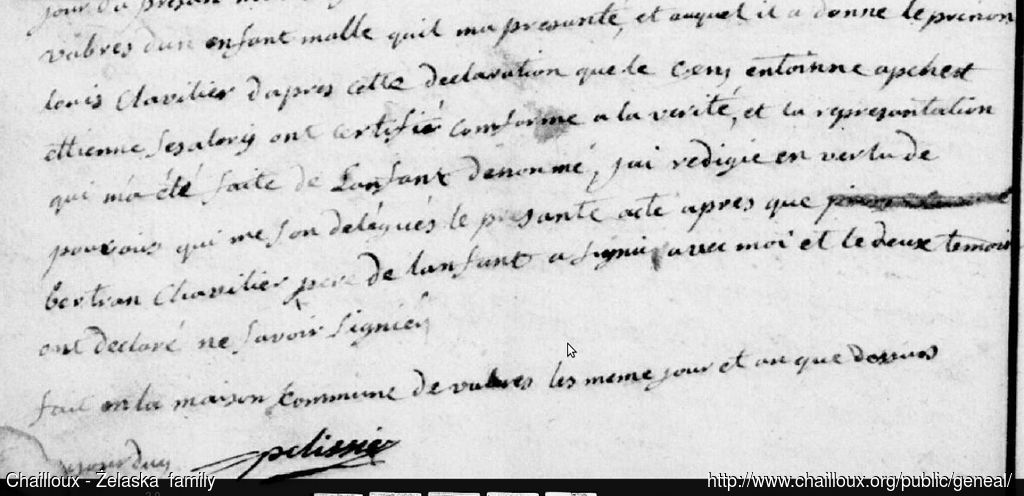 jour du presan
vabres dun enfant malle quil ma presanté, et auquel il a donne le prenon
louis Clavilier dapres cette declaration que le Ceny entoinne apchest
ettienne ont certifié comforme a la verité, et la represantation
qui ma été faite de Lanfant denommé, jai redigie en vertu de
pouvoirs qui me son delegués le presante acte apres que
bertran Chavilier pere de lanfant a signié avec moi et le deux temoin
ont declaré ne savoir signiey
fait en la maison Commune de vabres les meme jour et an que dessus
pelissier
Chailloux - Żelaska family
http://www.chailloux.org/public/geneal/